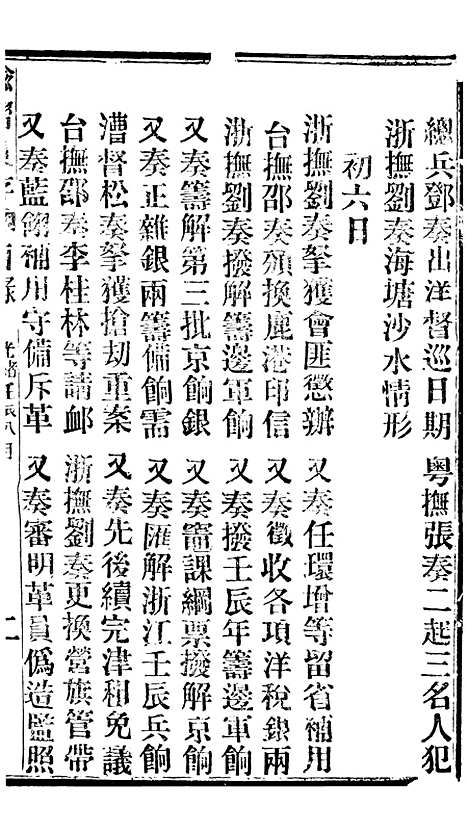 總兵鄧奏出洋督巡日期　粵撫張奏二起三名人犯
浙撫劉奏海塘沙水情形
初六日
浙撫劉奏拏獲會匪懲辦　又奏任環增等留省補用
台撫邵奏頒換鹿港印信　又奏徵收各項洋稅銀兩
浙撫劉奏撥解籌邊軍餉　又奏撥壬辰年籌邊軍餉
又奏籌解第三批京餉銀　又奏竈課綱票撥解京餉
又奏正雜銀兩籌備餉需　又奏匯解浙江壬辰兵餉
漕督松奏拏獲搶劫重案　又奏先後續完津租免議
台撫邵奏李桂林等請卹　浙撫劉奏更換營旗管帶
又奏藍翎補用守備斥革　又奏審明革員僞造監照
光緒壬辰八月　二